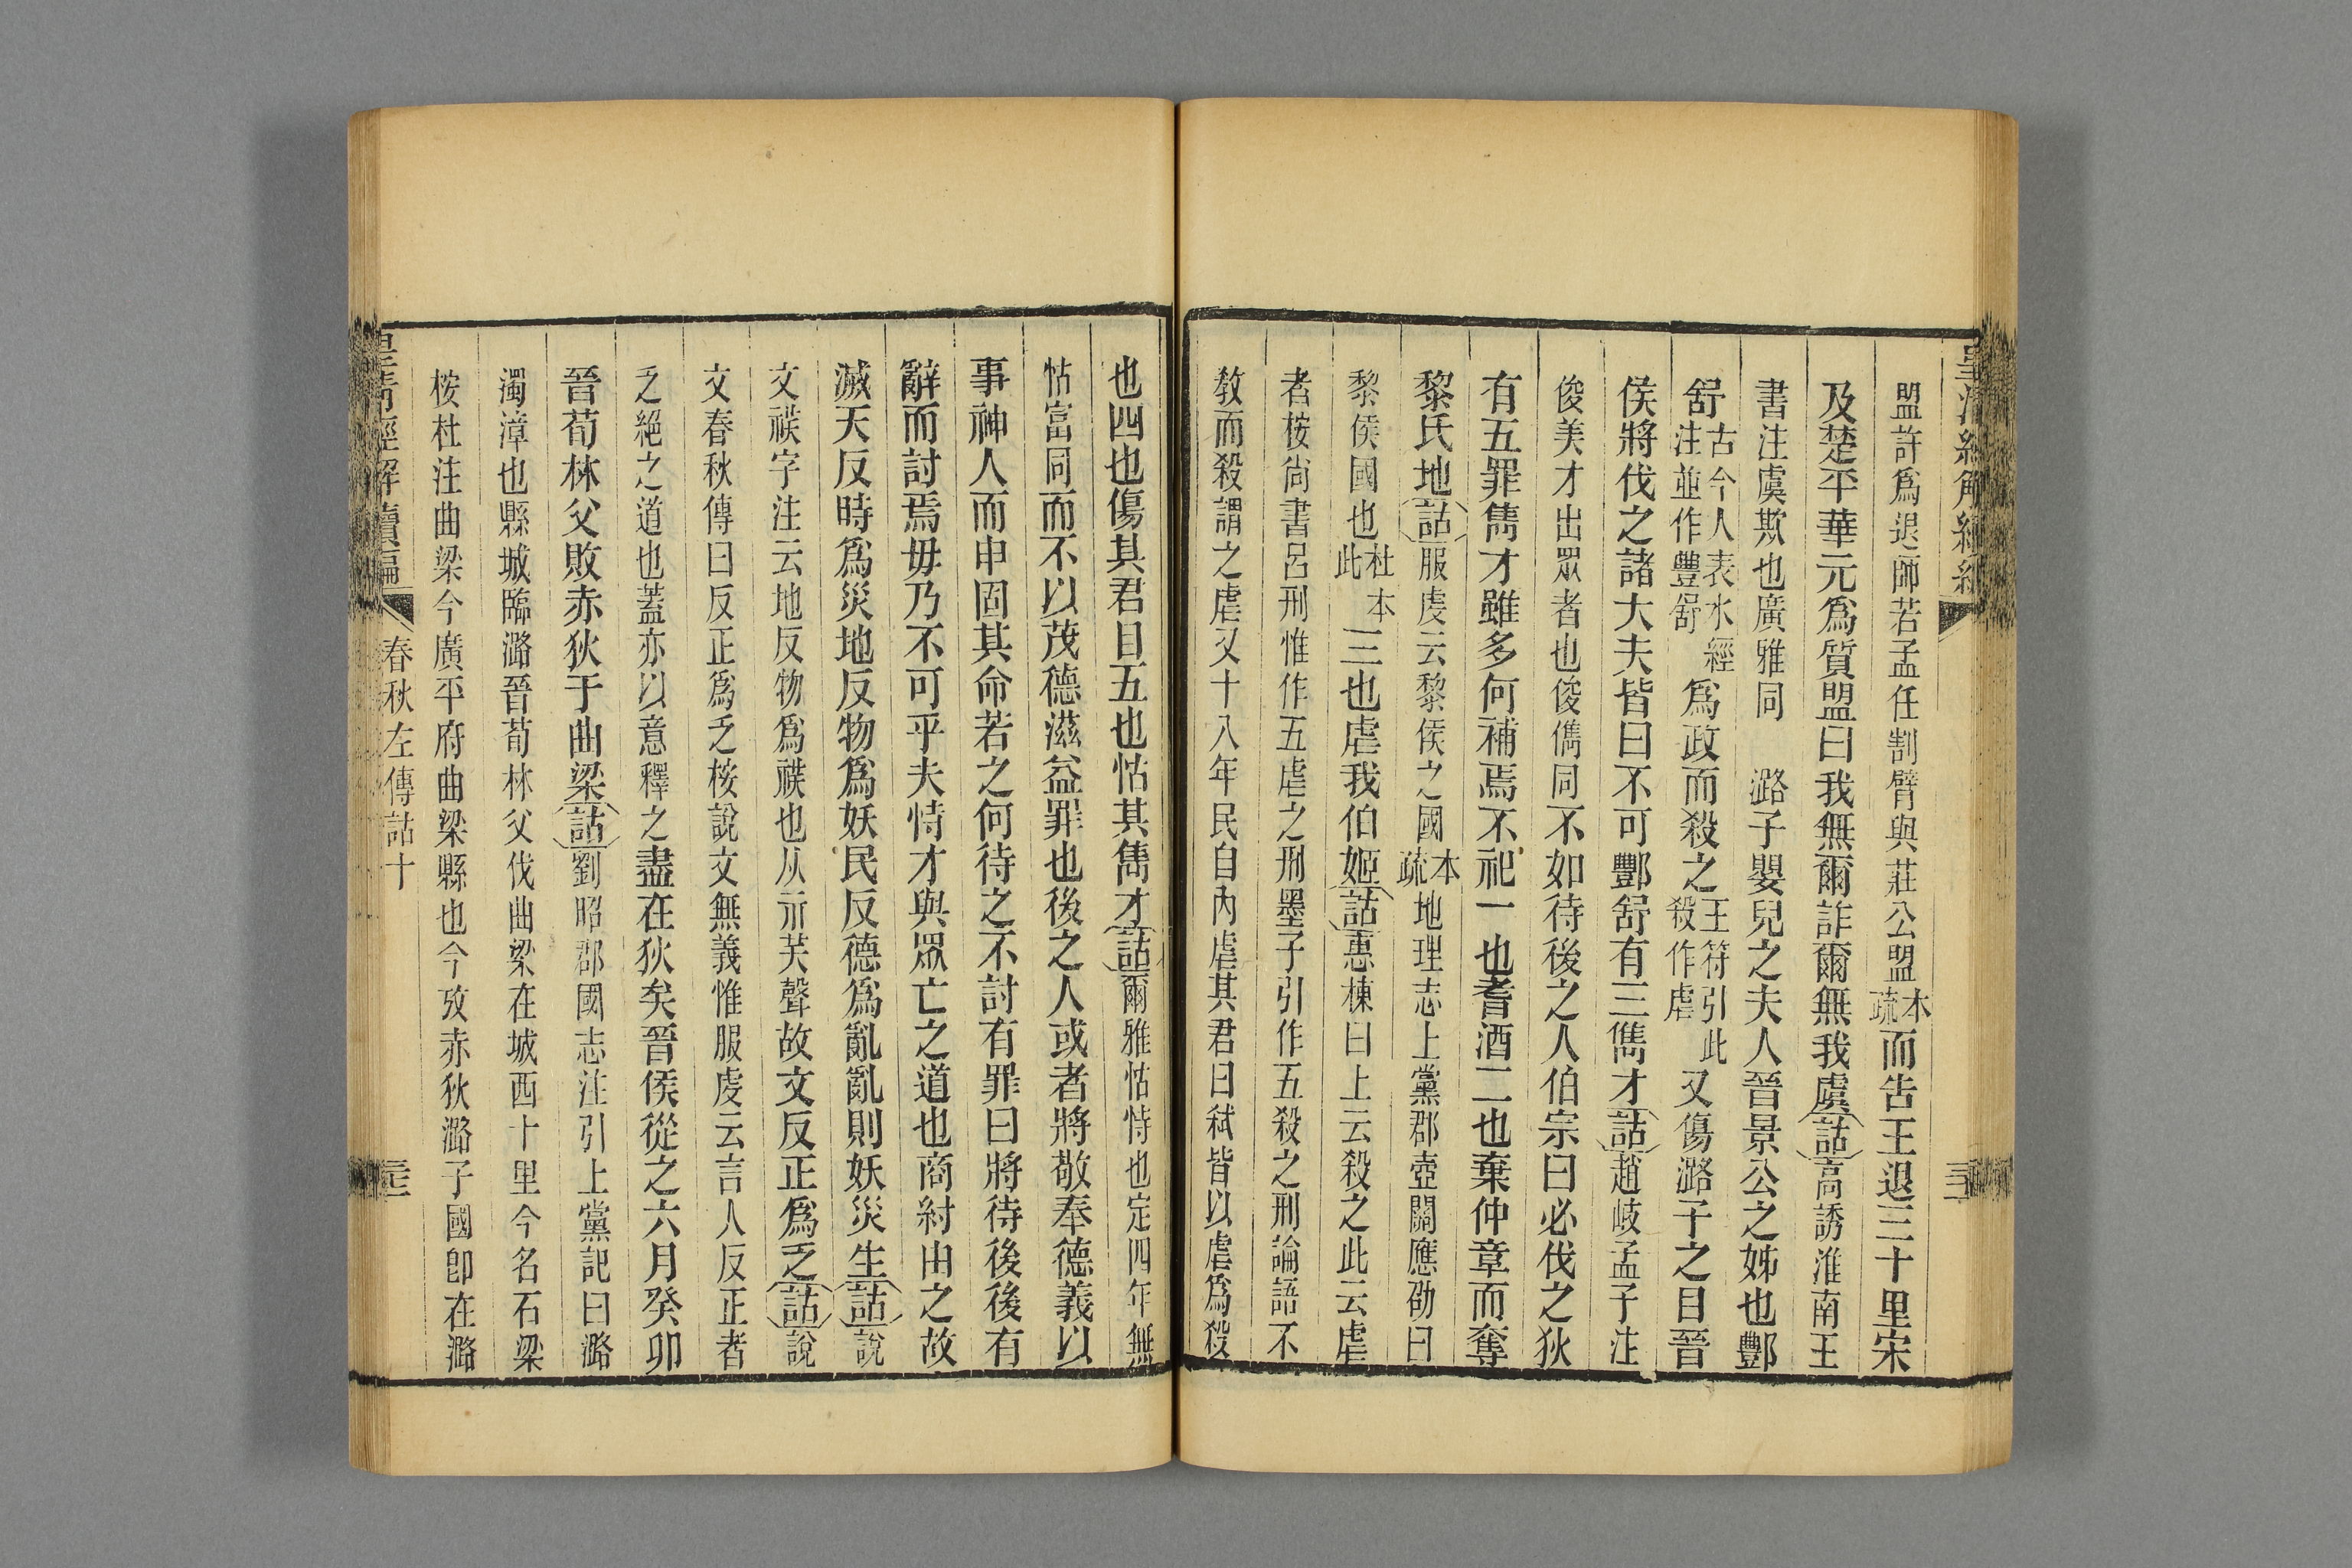 盟許爲退師若孟任割臂與莊公盟本疏而告王退三十里宋
及楚平華元爲質盟曰我無爾詐爾無我虞詁高誘淮南王
書注虞欺也廣雅同　潞子嬰兒之夫人晉景公之姊也酆
舒古今人表水經注並作豐舒爲政而殺之王符引此殺作虐又傷潞子之目晉
侯將伐之諸大夫皆曰不可酆舒有三儁才詁趙岐孟子注
俊美才出眾者也俊儁同不如待後之人伯宗曰必伐之狄
有五罪儁才雖多何補焉不祀一也耆酒二也棄仲章而奪
黎氏地詁服虔云黎侯之國本疏地理志上黨郡壺關應劭曰
黎侯國也杜本此三也虐我伯姬詁惠棟曰上云殺之此云虐
者桉尙書呂刑惟作五虐之刑墨子引作五殺之刑論語不
敎而殺謂之虐又十八年民自內虐其君曰弒皆以虐爲殺
也四也傷其君目五也怙其雋才詁爾雅怙恃也定四年無
怙富同而不以茂德滋益罪也後之人或者將敬奉德義以
事神人而申固其命若之何待之不討有罪曰將待後後有
辭而討焉毋乃不可乎夫恃才與眾亡之道也商紂由之故
滅天反時爲災地反物爲妖民反德爲亂亂則妖災生詁說
文䄏字注云地反物爲䄏也从示芺聲故文反正爲乏詁說
文春秋傳曰反正爲乏桉說文無義惟服虔云言人反正者
乏絕之道也蓋亦以意釋之盡在狄矣晉侯從之六月癸卯
晉荀林父敗赤狄于曲梁詁劉昭郡國志注引上黨記曰潞
濁漳也縣城臨潞晉荀林父伐曲梁在城西十里今名石梁
桉杜注曲梁今廣平府曲梁縣也今攷赤狄潞子國卽在潞
皇淸經解續編
春秋左傳詁十